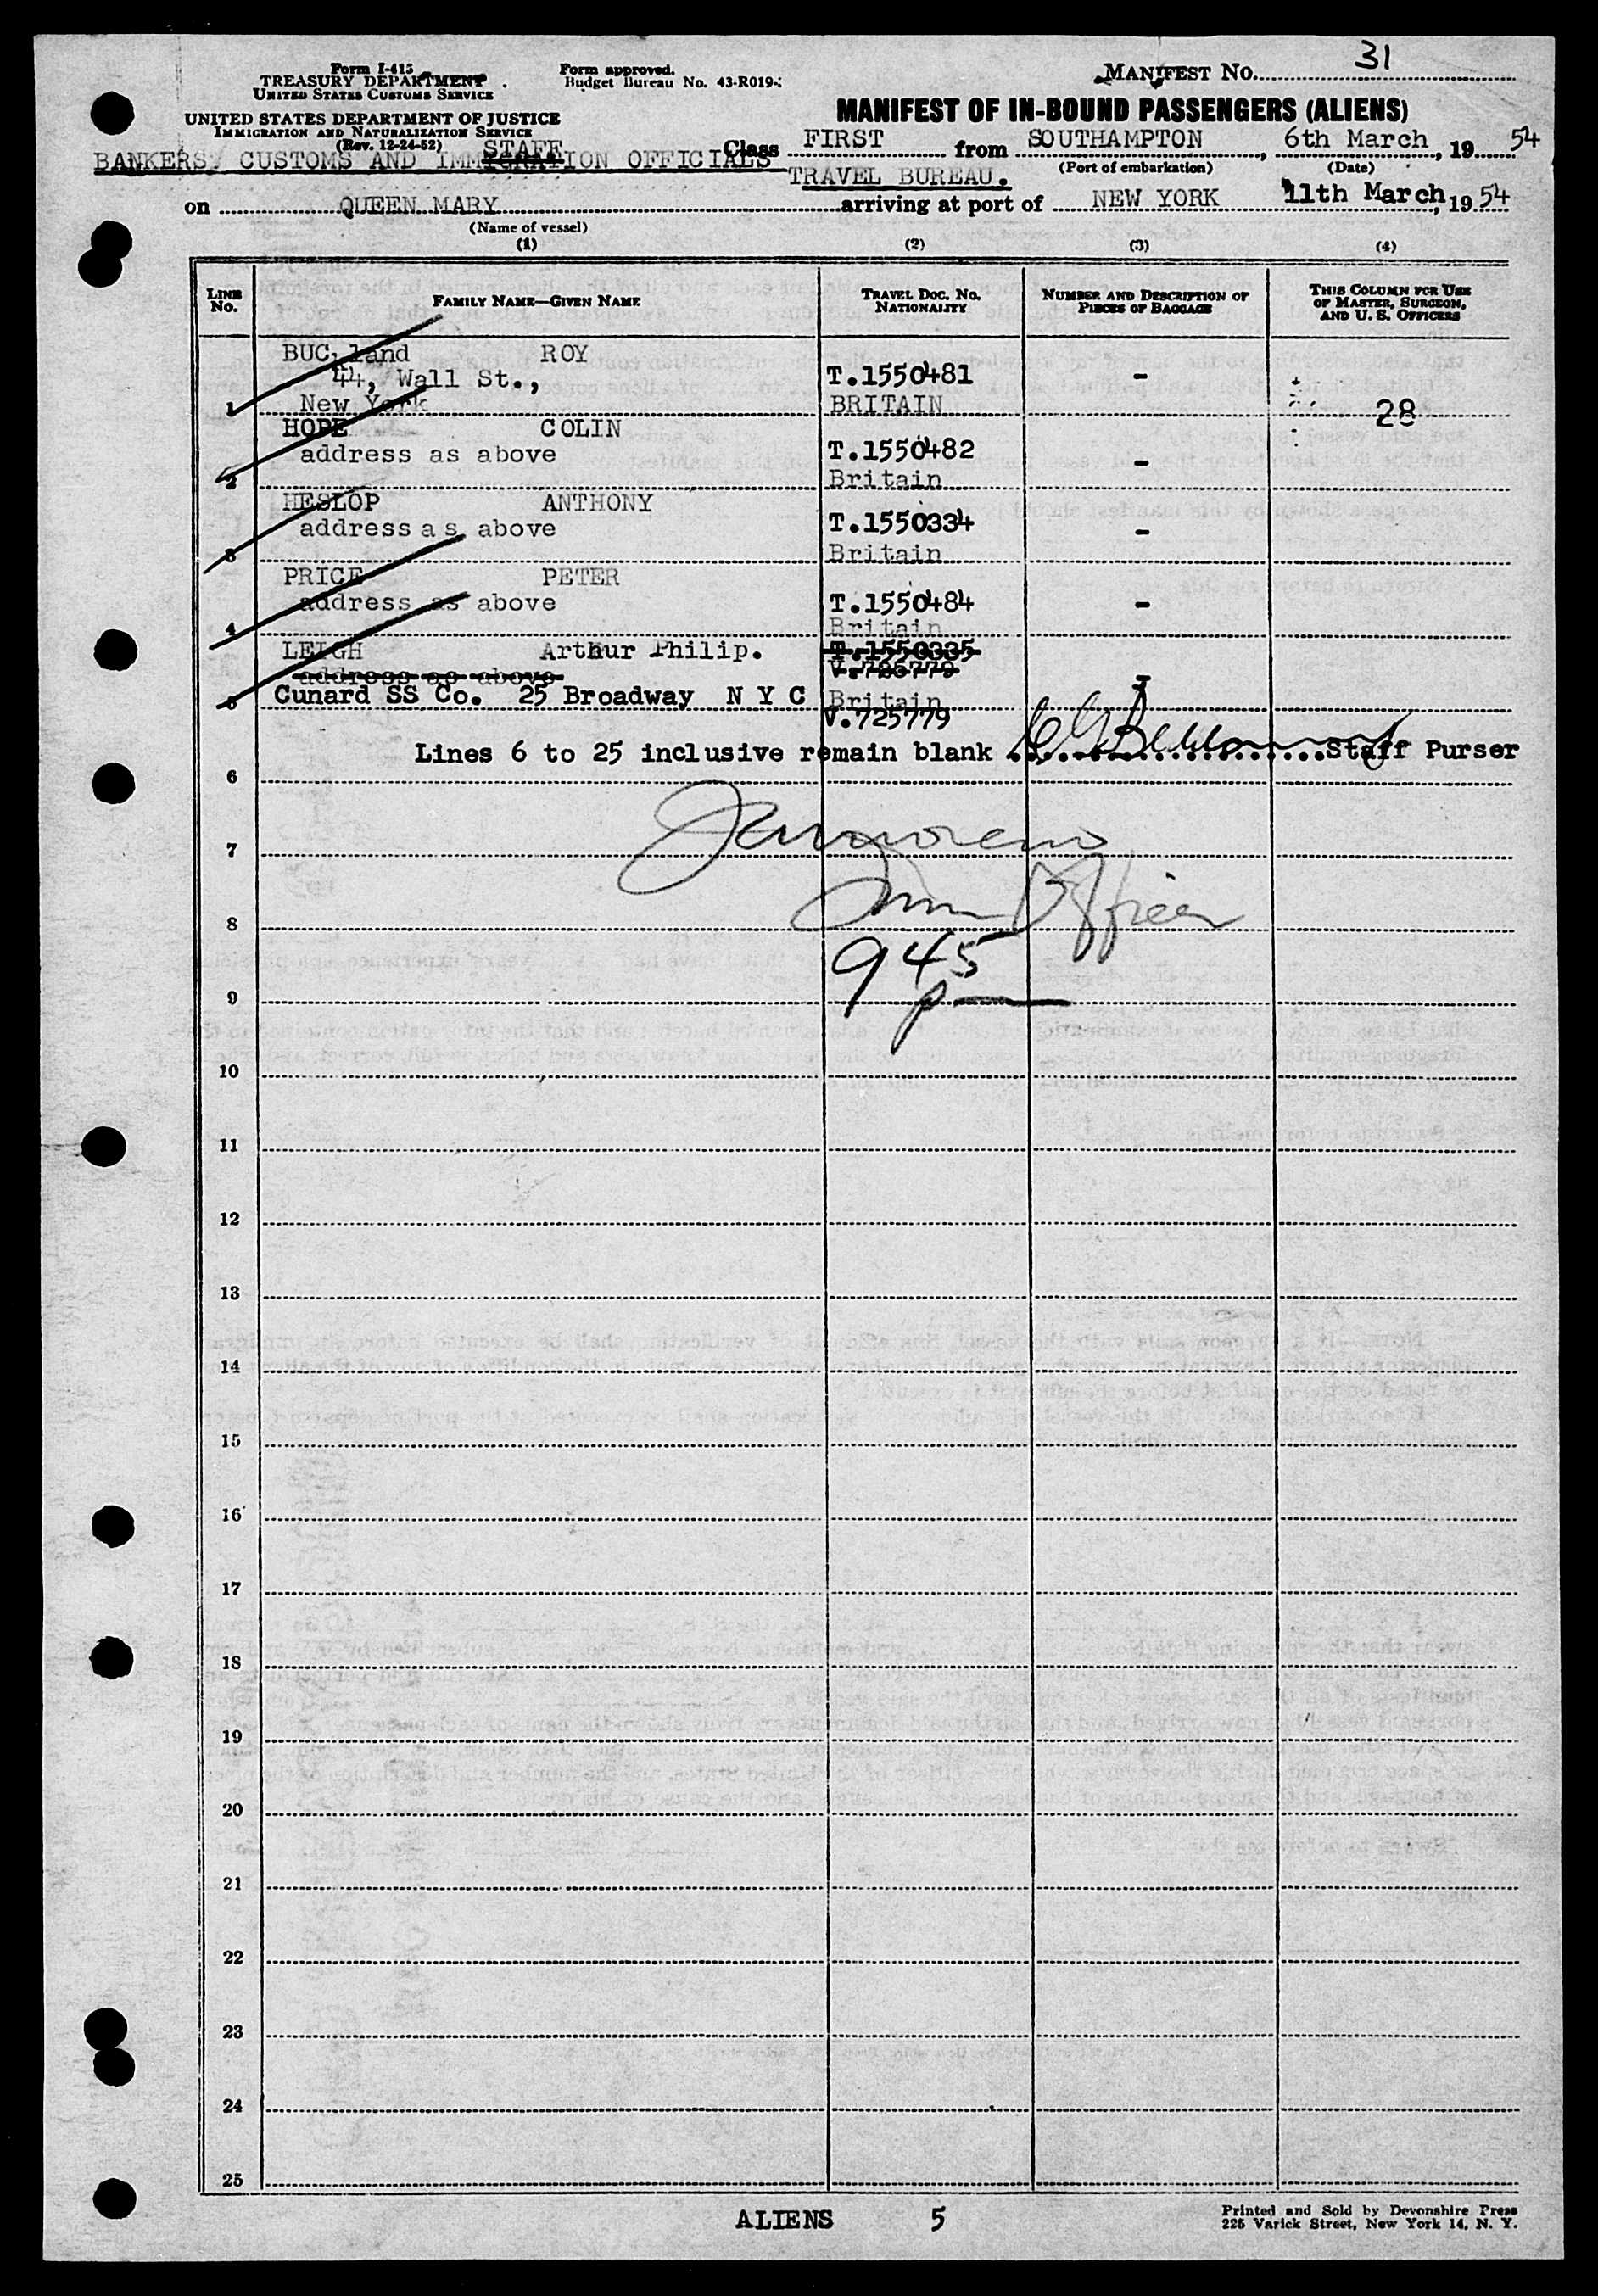 Form I-415
TREASURY DEPARTMENT
UNITED STATES CUSTOMS SERVICE
UNITED STATES DEPARTMENT OF JUSTICE
IMMIGRATION AND NATURALIZATION SERVICE
(Rev. 12-24-52)
Form approved.
Budget Bureau No. 43-R019-
MANIFEST NO. 31
MANIFEST OF IN-BOUND PASSENGERS (ALIENS)
STAFF
BANKERS, CUSTOMS AND IMMIGRATION OFFICIALS
Class FIRST from SOUTHAMPTON, 6th March, 1954
TRAVEL BUREAU.
(Port of embarkation) (Date)
on QUEEN MARY arriving at port of NEW YORK 11th March, 1954
(Name of vessel)
(1) (2) (3) (4)
LINE No.
FAMILY NAME—GIVEN NAME
TRAVEL DOC. NO. NATIONALITY
NUMBER AND DESCRIPTION OF PIECES OF BAGGAGE
THIS COLUMN FOR USE OF MASTER, SURGEON, AND U. S. OFFICERS
BUC land ROY
44, Wall St., T.1550481 -
1 New York BRITAIN 28
HOPE COLIN
address as above T.1550482 -
2 Britain
HESLOP ANTHONY
address as above T.1550334 -
3 Britain
PRICE PETER
address as above T.1550484 -
4 Britain
LEIGH Arthur Philip. T.1550335
address as above V.726779
5 Cunard SS Co. 25 Broadway N Y C Britain
V.725779
Lines 6 to 25 inclusive remain blank Staff Purser
6
7
Officer
8
945
9
10
11
12
13
14
15
16
17
18
19
20
21
22
23
24
25
ALIENS 5
Printed and Sold by Devonshire Press
225 Varick Street, New York 14, N. Y.